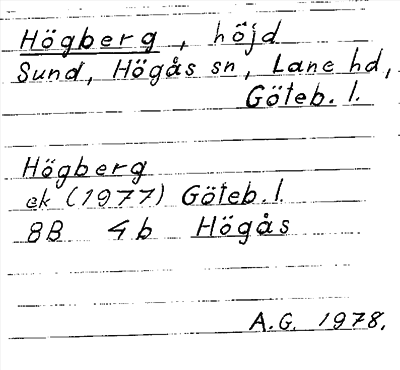 Högberg, höjd
Sund, Högås sn, Lane hd,
Göteb. l.
Högberg
ek (1977) Göteb. l.
8B 4b Högås
A.G. 1978.